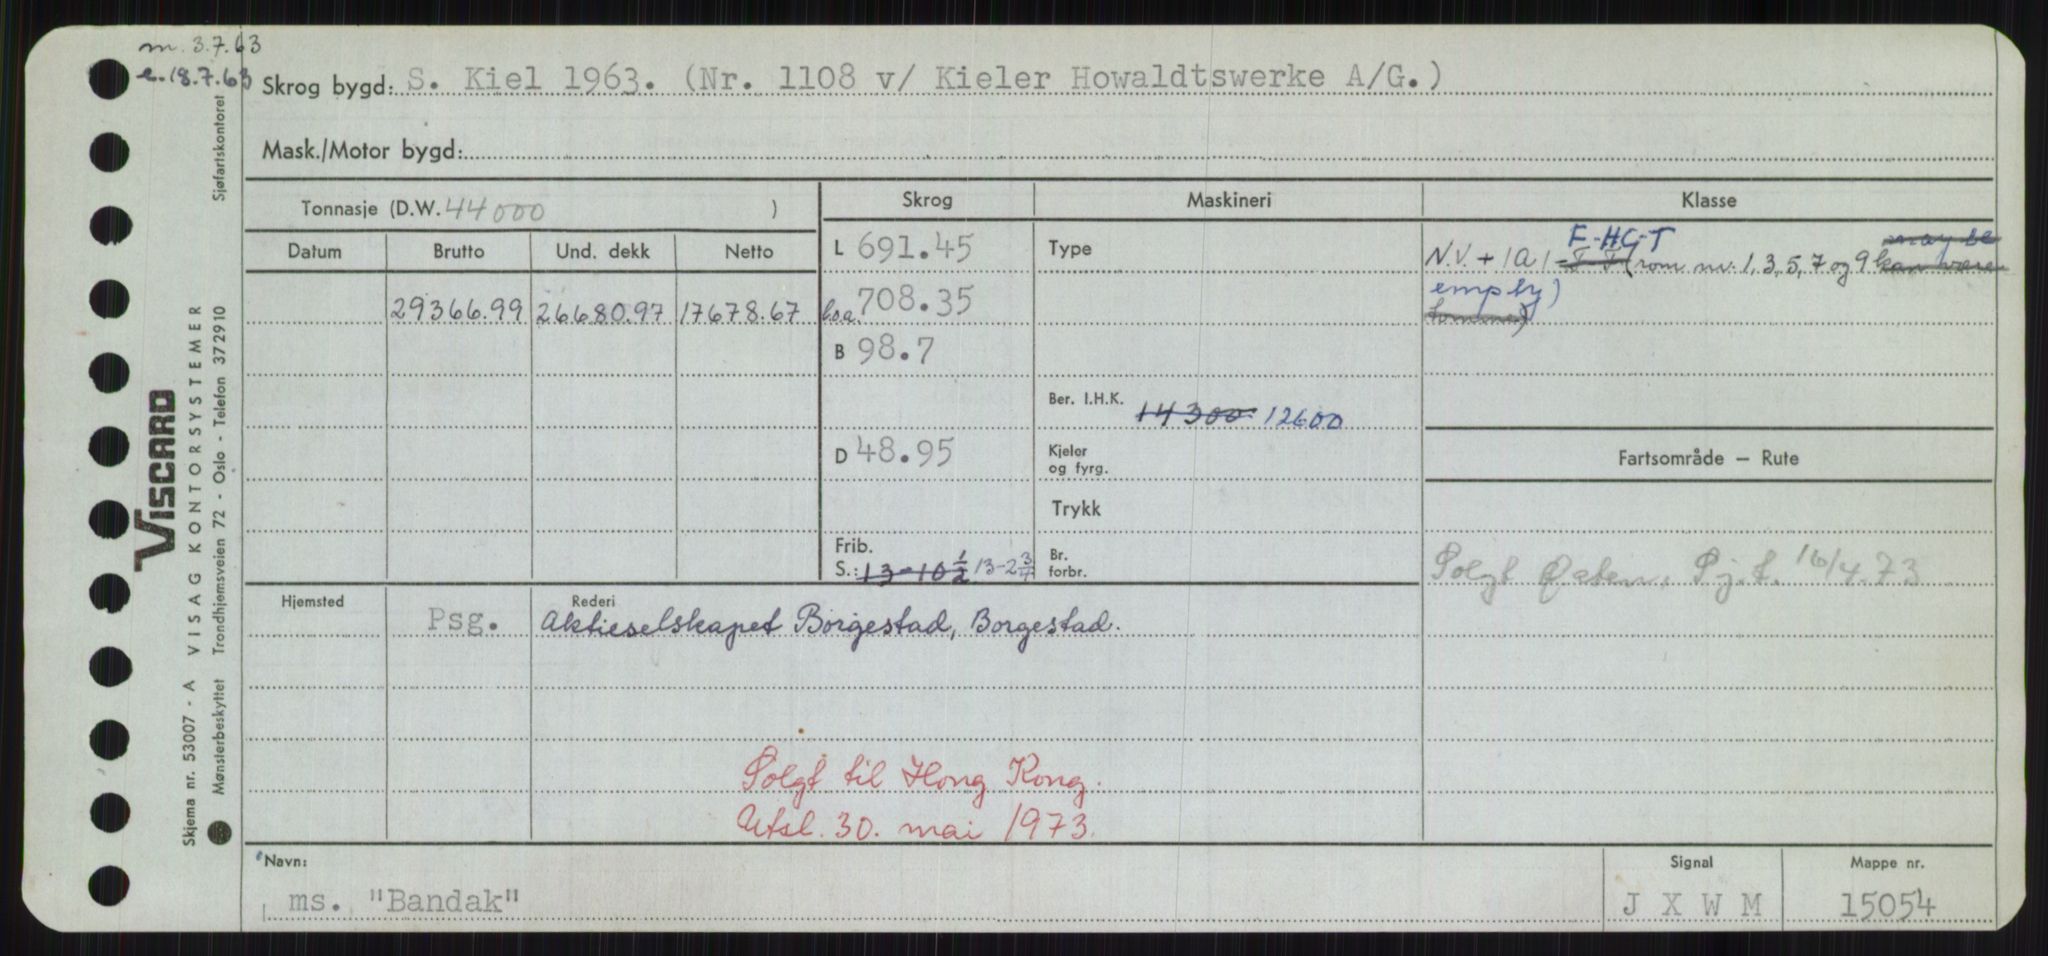 m. 3.7.63
e. 18.7.63
Skrog bygd: S. Kiel 1963. (Nr. 1108 v/ Kieler Howaldtswerke A/G.)
Mask./Motor bygd:
Tonnasje (D.W. 44000 )
Skrog Maskineri Klasse
Datum Brutto Und. dekk Netto
29366.99 26680.97 17678.67
L 691.45
l.o.a. 708.35
B 98.7
D 48.95
Frib.
S.: 13-10 1/2 13-2 3/4
Type
Ber. I.H.K. 14300 12600
Kjeler
og fyrg.
Trykk
Br.
forbr.
F-HC-T may be
N.V. + 1A1 - T T (rom nr. 1, 3, 5, 7 og 9 kan være
empty)
tomme)
Fartsområde — Rute
Solgt Østen, Sj.t. 16/4.73
Hjemsted Rederi
Psg. Aktieselskapet Borgestad, Borgestad.
Solgt til Hong Kong.
Utsl. 30. mai 1973.
Navn: Signal Mappe nr.
ms. "Bandak" J X W M 15054
Sjøfartskontoret
VISCARD
Skjema nr. 53007 - A VISAG KONTORSYSTEMER
Mønsterbeskyttet Trondhjemsveien 72 - Oslo - Telefon 372910